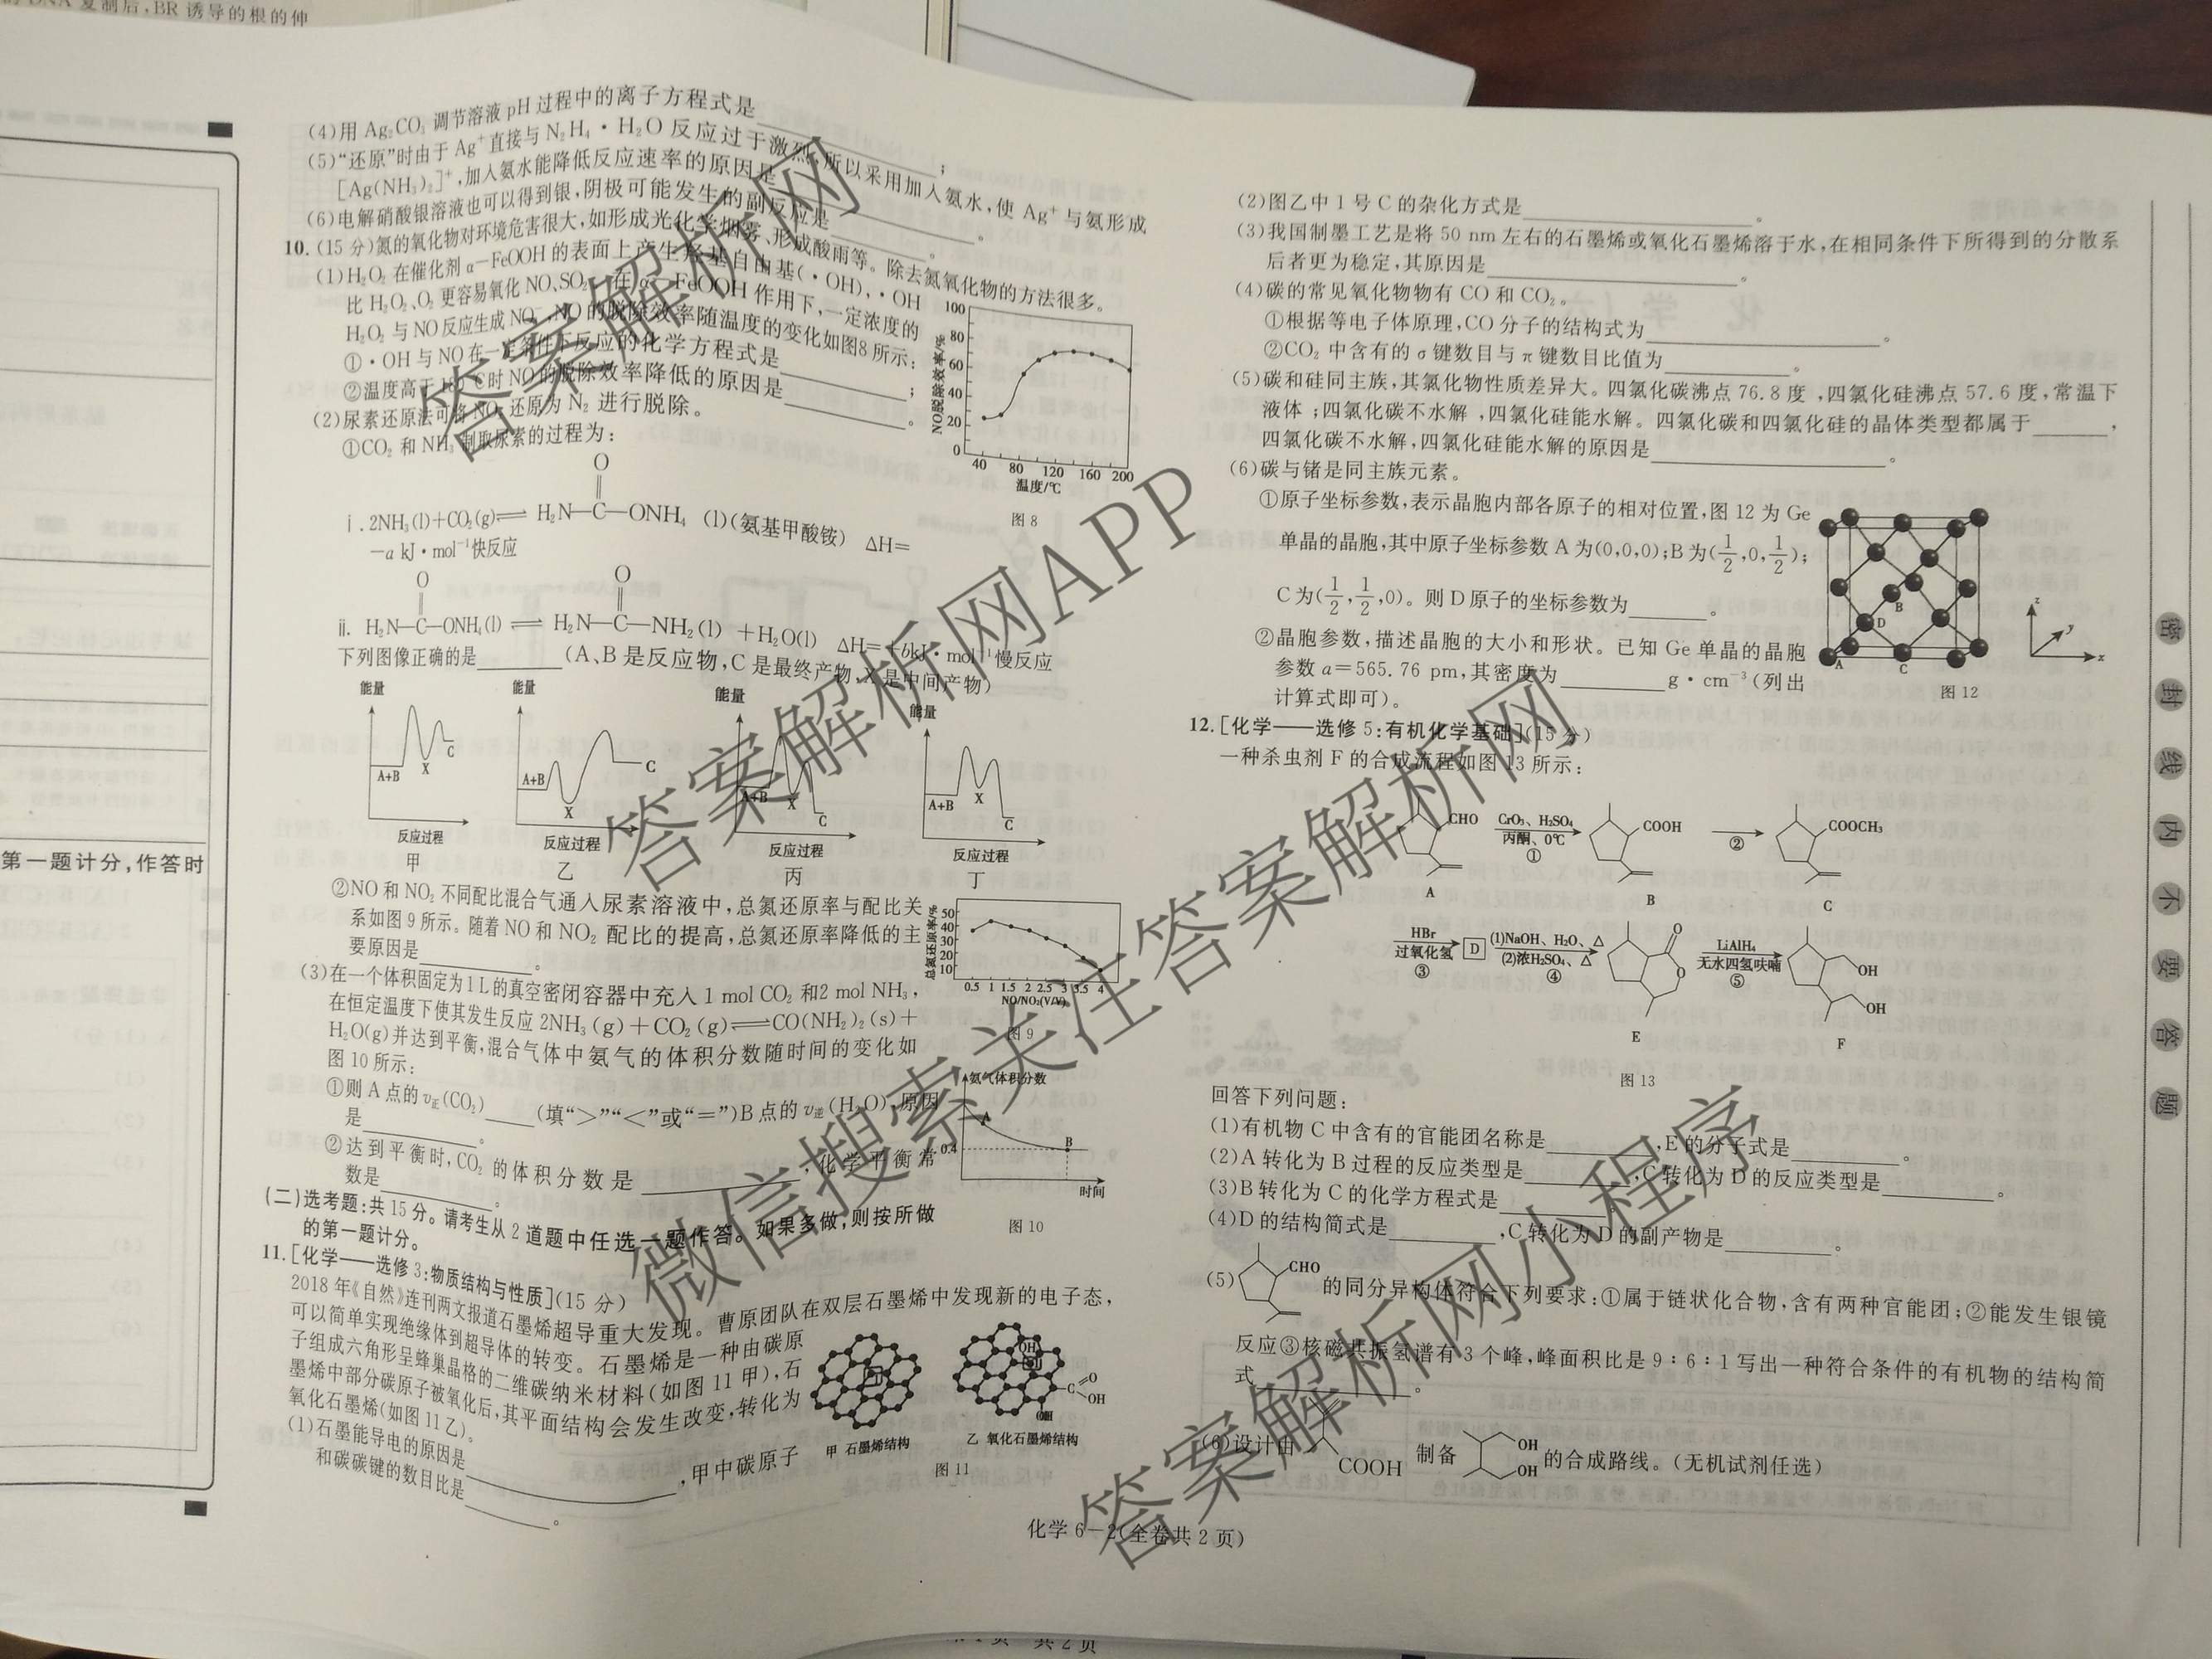 DNA 复制后,BR 诱导的根的伸
(4)用 Ag₂CO₃ 调节溶液 pH 过程中的离子方程式是________;
(5)“还原”时由于 Ag⁺直接与 N₂H₄·H₂O 反应过于激烈,所以采用加入氨水,使 Ag⁺ 与氨形成
[Ag(NH₃)₂]⁺,加入氨水能降低反应速率的原因是________。
(6)电解硝酸银溶液也可以得到银,阴极可能发生的副反应是________。
10.(15 分)氮的氧化物对环境危害很大,如形成光化学烟雾、形成酸雨等。除去氮氧化物的方法很多。
(1)H₂O₂ 在催化剂 α-FeOOH 的表面上产生羟基自由基(·OH),·OH
比 H₂O₂、O₂ 更容易氧化 NO、SO₂ 在 α-FeOOH 作用下,一定浓度的
H₂O₂ 与 NO 反应生成 NO ,NO 的脱除效率随温度的变化如图8 所示:
①·OH 与 NO 在一定条件下反应的化学方程式是________;
②温度高于 ℃时 NO 的脱除效率降低的原因是________。
NO脱除效率/%
100
80
60
40
20
0
40 80 120 160 200
温度/℃
图 8
(2)尿素还原法可将 NO 还原为 N₂ 进行脱除。
①CO₂ 和 NH₃ 制取尿素的过程为:
O
ⅰ. 2NH₃(l)+CO₂(g)⇌ H₂N—C—ONH₄ (l)(氨基甲酸铵) ΔH=
−a kJ·mol⁻¹快反应
O O
ⅱ. H₂N—C—ONH₄(l) ⇌ H₂N—C—NH₂(l) +H₂O(l) ΔH=+bkJ·mol⁻¹慢反应
下列图像正确的是________(A、B 是反应物,C 是最终产物,X 是中间产物)
能量 能量 能量 能量
A+B X C
A+B X C
A+B X C
A+B X C
反应过程 反应过程 反应过程 反应过程
甲 乙 丙 丁
②NO 和 NO₂ 不同配比混合气通入尿素溶液中,总氮还原率与配比关
系如图 9 所示。随着 NO 和 NO₂ 配比的提高,总氮还原率降低的主
要原因是________。
总氮还原率/%
50
40
30
20
10
0.5 1 1.5 2 2.5 3 3.5 4
NO/NO₂(V/V)
图 9
(3)在一个体积固定为 1 L 的真空密闭容器中充入 1 mol CO₂ 和2 mol NH₃,
在恒定温度下使其发生反应 2NH₃(g)+CO₂(g)⇌CO(NH₂)₂(s)+
H₂O(g)并达到平衡,混合气体中氨气的体积分数随时间的变化如
图 10 所示:
①则 A 点的 v正(CO₂)____(填“>”“<”或“=”)B 点的 v逆(H₂O),原因
是________。
②达到平衡时,CO₂ 的体积分数是________,化学平衡常
数是________。
氨气体积分数
A
0.4
B
时间
图 10
(二)选考题:共 15 分。请考生从 2 道题中任选一题作答。如果多做,则按所做
的第一题计分。
11.[化学——选修 3:物质结构与性质](15 分)
2018 年《自然》连刊两文报道石墨烯超导重大发现。曹原团队在双层石墨烯中发现新的电子态,
可以简单实现绝缘体到超导体的转变。石墨烯是一种由碳原
子组成六角形呈蜂巢晶格的二维碳纳米材料(如图 11 甲),石
墨烯中部分碳原子被氧化后,其平面结构会发生改变,转化为
氧化石墨烯(如图 11 乙)。
(1)石墨能导电的原因是________,甲中碳原子
和碳碳键的数目比是________。
OH
1
C
O
OH
OH
甲 石墨烯结构 乙 氧化石墨烯结构
图 11
(2)图乙中 1 号 C 的杂化方式是________。
(3)我国制墨工艺是将 50 nm 左右的石墨烯或氧化石墨烯溶于水,在相同条件下所得到的分散系
后者更为稳定,其原因是________。
(4)碳的常见氧化物物有 CO 和 CO₂。
①根据等电子体原理,CO 分子的结构式为________。
②CO₂ 中含有的 σ 键数目与 π 键数目比值为________。
(5)碳和硅同主族,其氯化物性质差异大。四氯化碳沸点 76.8 度 ,四氯化硅沸点 57.6 度,常温下
液体 ;四氯化碳不水解 ,四氯化硅能水解。四氯化碳和四氯化硅的晶体类型都属于________,
四氯化碳不水解,四氯化硅能水解的原因是________。
(6)碳与锗是同主族元素。
①原子坐标参数,表示晶胞内部各原子的相对位置,图 12 为 Ge
单晶的晶胞,其中原子坐标参数 A 为(0,0,0);B 为(1/2,0,1/2);
C 为(1/2,1/2,0)。则 D 原子的坐标参数为________。
②晶胞参数,描述晶胞的大小和形状。已知 Ge 单晶的晶胞
参数 a=565.76 pm,其密度为________g·cm⁻³(列出
计算式即可)。
B
D
A
C
z
y
x
图 12
12.[化学——选修 5:有机化学基础](15 分)
一种杀虫剂 F 的合成流程如图 13 所示:
CHO CrO₃、H₂SO₄ 丙酮、0℃ ① COOH ② COOCH₃
A B C
HBr 过氧化氢 ③ D (1)NaOH、H₂O、△ (2)浓H₂SO₄、△ ④ O O LiAlH₄ 无水四氢呋喃 ⑤ OH OH
E F
图 13
回答下列问题:
(1)有机物 C 中含有的官能团名称是________,E 的分子式是________。
(2)A 转化为 B 过程的反应类型是________,C 转化为 D 的反应类型是________。
(3)B 转化为 C 的化学方程式是________。
(4)D 的结构简式是________,C 转化为 D 的副产物是________。
(5) CHO 的同分异构体符合下列要求:①属于链状化合物,含有两种官能团;②能发生银镜
反应③核磁共振氢谱有 3 个峰,峰面积比是 9:6:1 写出一种符合条件的有机物的结构简
式________。
(6)设计由 COOH 制备 OH OH 的合成路线。(无机试剂任选)
化学 6-2(全卷共 2 页)
第一题计分,作答时
密封线内不要答题
共 2 页
答案解析网
答案解析网APP
微信搜索关注答案解析网
答案解析网小程序